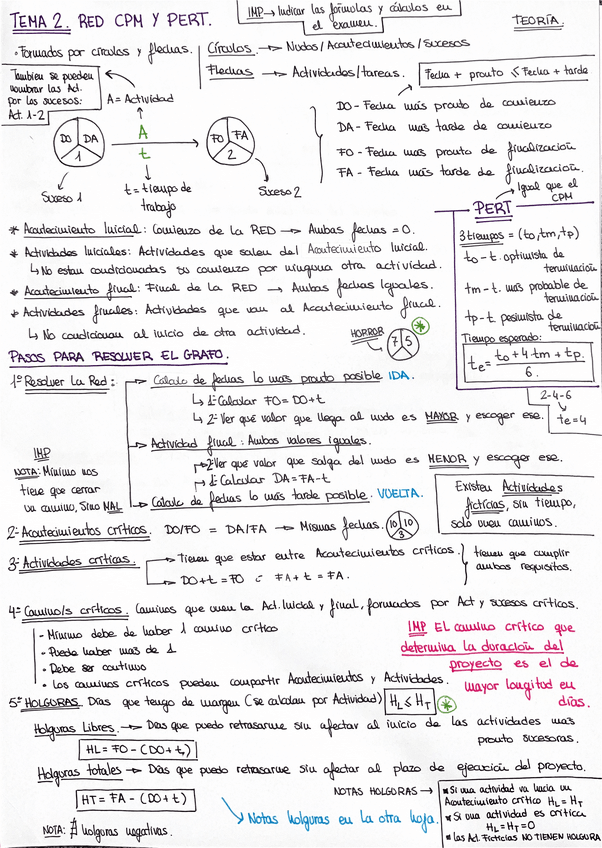 TEMA 2. RED CPM Y PERT.
IMP → Indicar las fórmulas y cálculos en
el examen.
TEORÍA.
· Formados por círculos y flechas.
Círculos → Nudos/Acontecimientos/Sucesos
Flechas → Actividades/tareas.
Fecha + pronto ≤ Fecha + tarde
También se pueden
nombrar las Act.
por los sucesos:
Act. 1-2
A = Actividad
DO DA
1
A
t
FO FA
2
Suceso 1
t = tiempo de
trabajo
Suceso 2
DO - Fecha más pronto de comienzo
DA - Fecha más tarde de comienzo
FO - Fecha más pronto de finalización
FA - Fecha más tarde de finalización.
PERT → Igual que el
CPM
3 tiempos = (to, tm, tp)
to - t. optimista de
terminación
tm - t. más probable de
terminación
tp - t. pesimista de
terminación
Tiempo esperado:
te = to + 4·tm + tp.
6.
2-4-6
te = 4
* Acontecimiento Inicial: Comienzo de la RED → Ambas fechas = 0.
* Actividades Iniciales: Actividades que salen del Acontecimiento Inicial.
↳ No están condicionadas su comienzo por ninguna otra actividad.
* Acontecimiento final: Final de la RED → Ambas fechas iguales.
* Actividades finales: Actividades que van al Acontecimiento final.
↳ No condicionan al inicio de otra actividad.
HORROR
7 5
*
PASOS PARA RESOLVER EL GRAFO.
1º Resolver la Red:
Cálculo de fechas lo más pronto posible IDA.
↳ 1º Calcular FO = DO + t
↳ 2º Ver qué valor que llega al nudo es MAYOR y escoger ese.
Actividad final: Ambos valores iguales.
2º Ver qué valor que salga del nudo es MENOR y escoger ese.
1º Calcular DA = FA - t
Cálculo de fechas lo más tarde posible. VUELTA.
IMP
NOTA: Mínimo nos
tiene que cerrar
un camino, Sino MAL
Existen Actividades
ficticias, sin tiempo,
solo unen caminos.
2º Acontecimientos críticos. DO/FO = DA/FA → Mismas fechas.
10 10
3
3º Actividades críticas.
→ Tienen que estar entre Acontecimientos críticos.
→ DO + t = FO
FA + t = FA.
tienen que cumplir
ambos requisitos.
4º Camino/s críticos. Caminos que unen la Act. Inicial y final, formados por Act y sucesos críticos.
- Mínimo debe de haber 1 camino crítico
- Puede haber más de 1.
- Debe ser continuo
- Los caminos críticos pueden compartir Acontecimientos y Actividades.
IMP EL camino crítico que
determina la duración del
proyecto es el de
mayor longitud en
días.
5º HOLGURAS. Días que tengo de margen (se calculan por Actividad)
HL ≤ HT
*
Holguras Libres. → Días que puedo retrasarme sin afectar al inicio de las actividades más
pronto sucesoras.
HL = FO - (DO + t)
Holguras totales → Días que puedo retrasarme sin afectar al plazo de ejecución del proyecto.
HT = FA - (DO + t)
NOTA: ∄ holguras negativas.
Notas holguras en la otra hoja.
NOTAS HOLGURAS →
* Si una actividad va hacia un
Acontecimiento crítico HL = HT
* Si una actividad es crítica
HL = HT = 0
* Las Act. Ficticias NO TIENEN HOLGURA